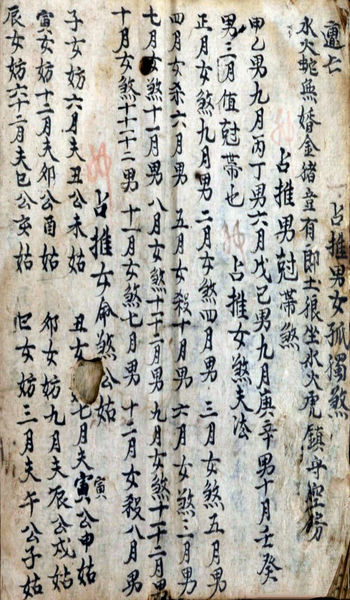 占推男女孤獨煞
水火蛇無婚金猪豈有郎土狼坐水火虎鎮守空房
占推男尅帶煞
甲乙男九月丙丁男六月戊己男九月庚辛男十月壬癸
男三月值尅帶也 占推女煞夫法
正月女煞九月男 二月女煞四月男 三月女煞五月男
四月女杀六月男 五月女殺十月男 六月女煞三月男
七月女煞十一月男 八月女煞十二月男 九月女煞十二月男
十月女煞十二男 十一月女煞七月男 十二月女殺八月男
占推女命煞公姑
子女妨六月夫丑公未姑 丑女七月夫寅公申姑
寅女妨十二月夫卯公酉姑 卯女妨九月夫辰公戌姑
辰女妨六十二月夫巳公亥姑 巳女妨三月夫午公子姑